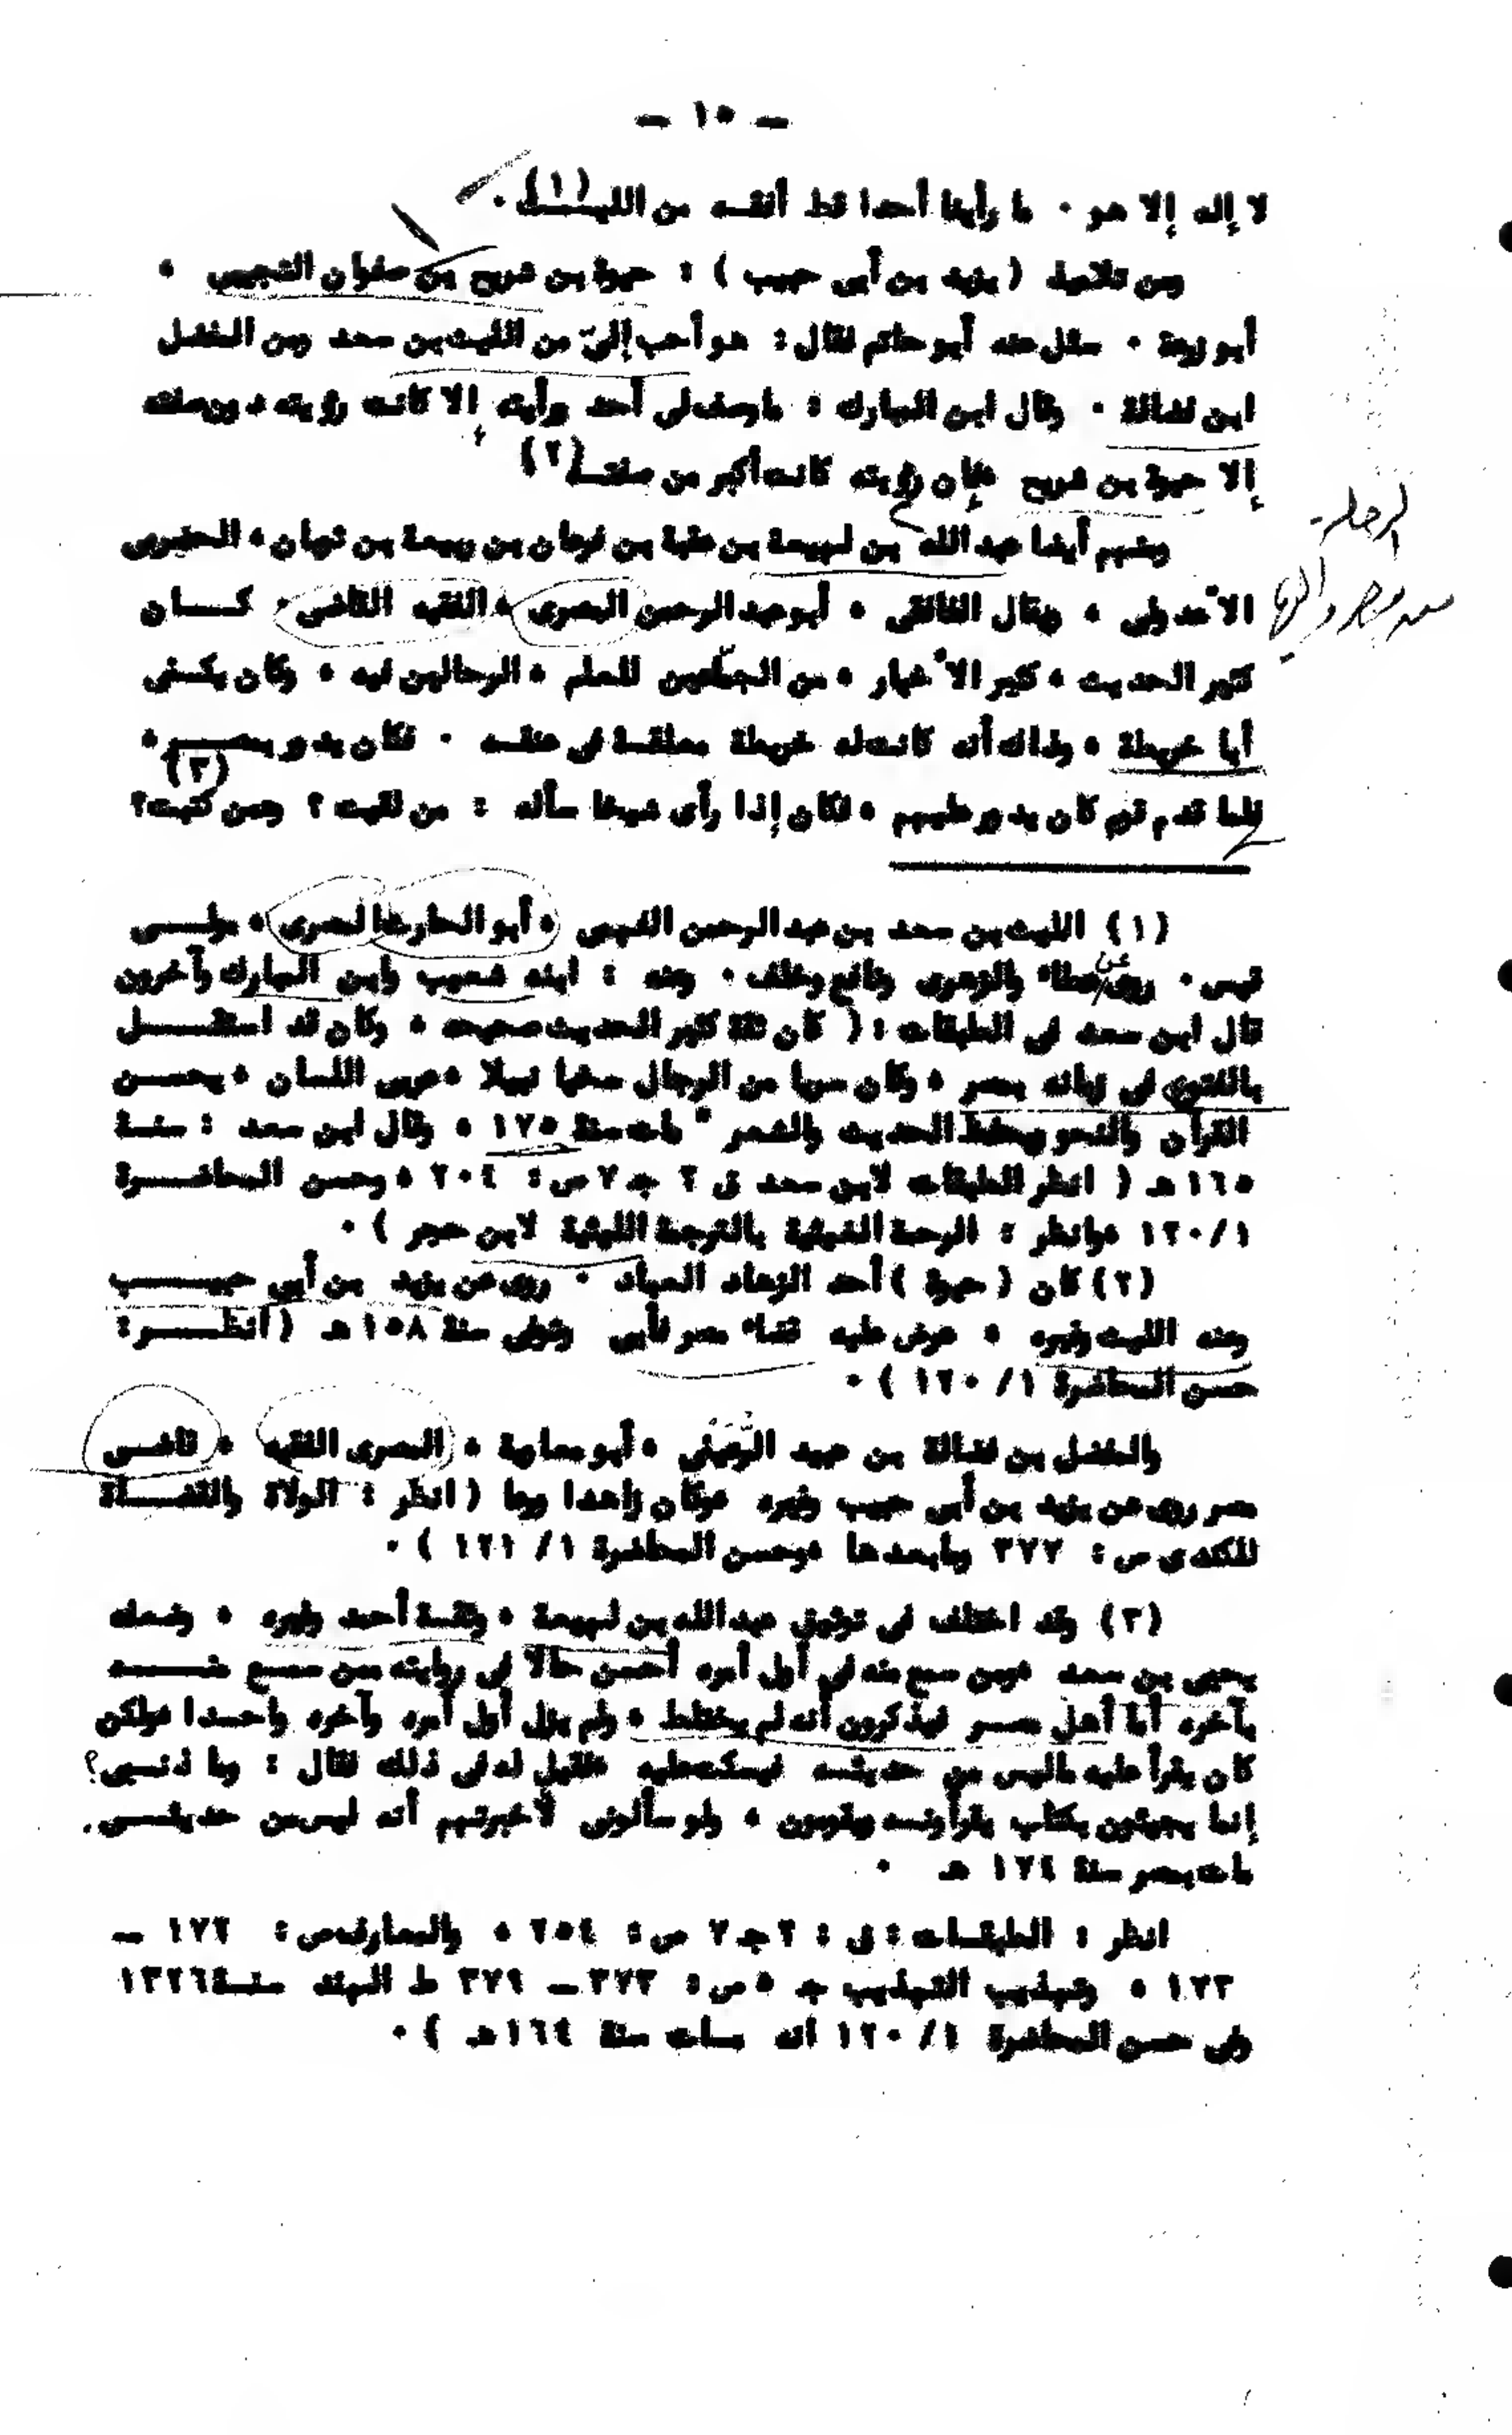 — ١٥ —
لا إله إلا هو ٠ ما رأينا أحدا قط أفقـه من الليـــث(١) ٠
ومن تلاميذ ( يزيد بن أبى حبيب ) : حيوة بن شريح بن صفوان التجيبى ،
أبو زرعة ٠ سئل عنه أبو حاتم فقال : هو أحب إلىّ من الليث بن سعد ومن المفضل
ابن فضالة ٠ وقال ابن المبارك : ما وصف لى أحد ورأيته إلا كانت رؤيته دون صفته
إلا حيوة بن شريح فإن رؤيته كانت أكبر من صفتـه(٢)
ومنهم أيضا عبد الله بن لهيعة بن عقبة بن فرعان بن ربيعة بن ثوبان ، الحضرمى
الأعدولى ، ويقال الغافقى ، أبو عبد الرحمن المصرى ، الفقيه القاضى ، كـــان
كثير الحديث ، كثير الأخبار ، من الجمّاعين للعلم ، الرحالين فيه ، وكان يكـنى
أبا خريطة ، وذاك أنه كانت له خريطة معلقـة فى عنقـه ٠ فكان يدور بمصـــر ،
فلما قدم قوم كان يدور عليهم ، فكان إذا رأى شيخا سأله : من لقيت ؟ وعمن كتبت ؟ (٣)
الرحلة
(١) الليث بن سعد بن عبد الرحمن الفهمى ، أبو الحارث المصرى ، مولـــى
فهم ٠ روى عن عطاء والزهرى ونافع وخلف ٠ وعنه : ابنه شعيب وابن المبارك وآخرون
قال ابن سعد فى الطبقات : ( كان ثقة كثير الحديث صحيحه ، وكان قد استقـــل
بالفتوى فى زمانه بمصر ، وكان سريا من الرجال سخيا نبيلا ، عربى اللسان ، يحســن
القرآن والنحو ويحفظ الحديث والشعر " مات سنة ١٧٥ ، وقال ابن سعد : سنـة
١٦٥ هـ ( انظر الطبقات لابن سعد ق ٢ جـ ٧ ص : ٢٠٤ ، وحسن المحاضـــرة
١/ ١٢٠ ،وانظر : الرحمة الغيثية بالترجمة الليثية لابن حجر ) ٠
(٢) كان ( حيوة ) أحد الزهاد العباد ٠ روى عن يزيد بن أبى حبيـــب
وعنه الليث وغيره ، عرض عليه قضاء مصر فأبى وتوفى سنة ١٥٨ هـ ( انظـــر :
حسن المحاضرة ١/ ١٢٠ ) ٠
والمفضل بن فضالة بن عبيد الرّعينى ، أبو معاوية ، المصرى الفقيه ، قاضـى
مصر روى عن يزيد بن أبى حبيب وغيره ،وكان زاهدا ورعا ( انظر : الولاة والقضـــاة
للكندى ص : ٣٧٧ وما بعدها ،وحسن المحاضرة ١/ ١٢١ ) ٠
(٣) وقد اختلف فى توثيق عبد الله بن لهيعة ، وثقـه أحمد وغيره ، وضعفه
يحيى بن سعد ،ومن سمع منه فى أول أمره أحسن حالا فى روايته ممن سمـع منـــه
بآخره أما أهل مصـر فيذكرون أنه لم يختلط ، ولم يزل أول أمره وآخره واحــدا ،ولكن
كان يقرأ عليه ماليس من حديثـه فيسكت عليه ،فقيل له فى ذلك فقال : وما ذنـبى ؟
إنما يجيئون بكتاب يقرأونـه ويقومون ، ولو سألونى لأخبرتهم أنه ليس من حديثـــى ٠
مات بمصر سنة ١٧٤ هـ ٠
انظر : الطبقـات : ق : ٢ جـ ٧ ص : ٢٥٤ ، والمعارف ص : ١٧٢ —
١٧٣ ، وتهذيب التهذيب جـ ٥ ص : ٣٧٣ — ٣٧٩ ط الهند سنـة ١٣٢٦
وفى حسن المحاضرة ١/ ١٢٠ أنه مـات سنة ١٦٤ هـ ) ٠